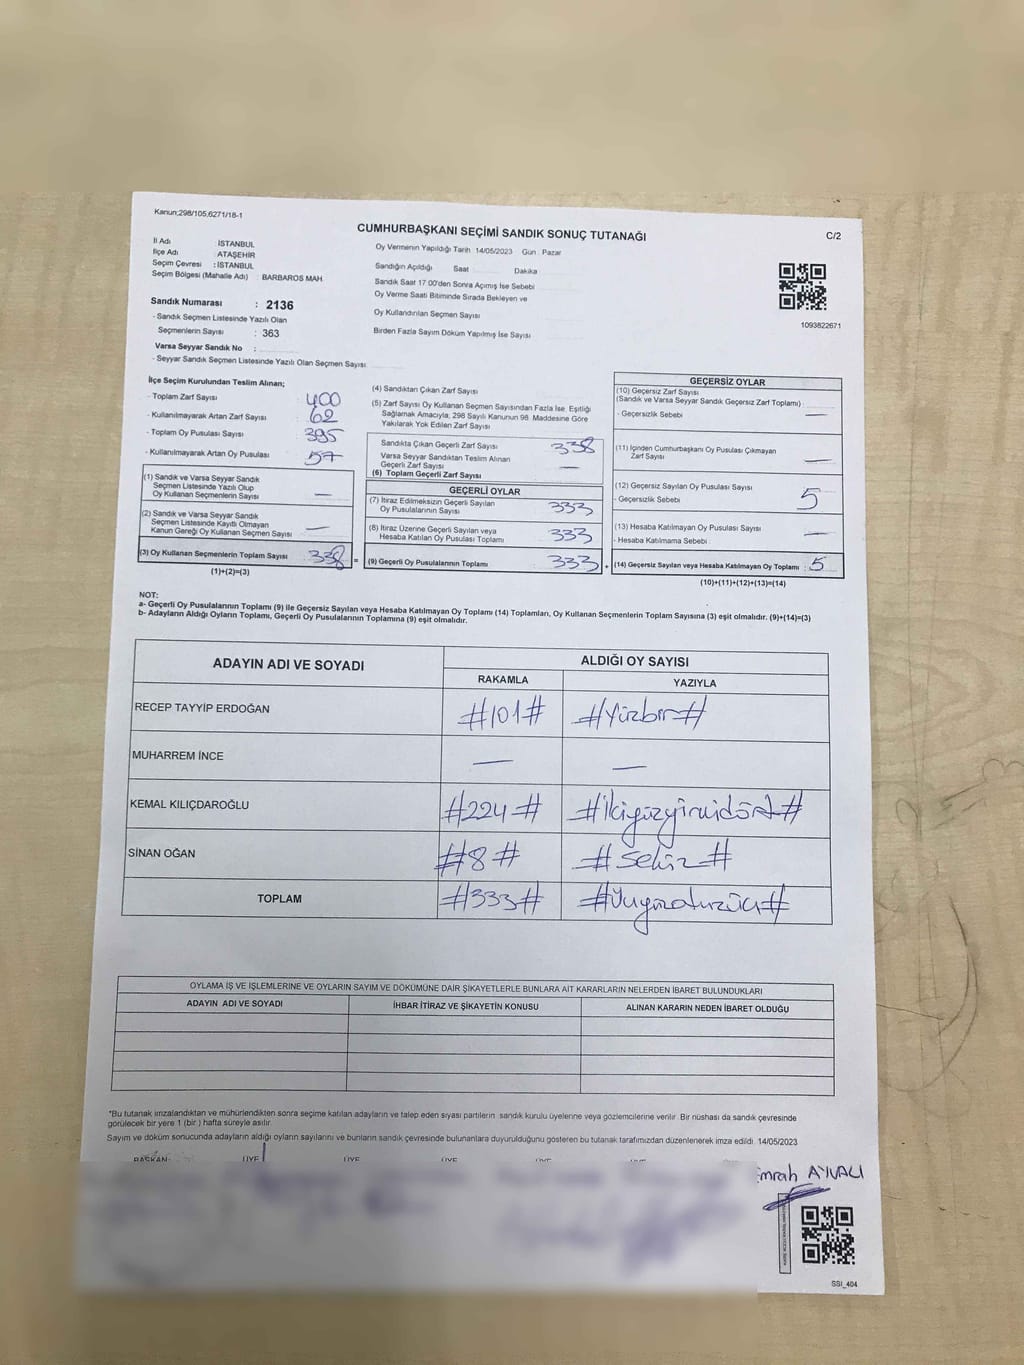 Kanun;298/105,6271/18-1
CUMHURBAŞKANI SEÇİMİ SANDIK SONUÇ TUTANAĞI
C/2
İl Adı : İSTANBUL
İlçe Adı : ATAŞEHİR
Seçim Çevresi : İSTANBUL
Seçim Bölgesi (Mahalle Adı) : BARBAROS MAH.
Sandık Numarası : 2136
- Sandık Seçmen Listesinde Yazılı Olan
Seçmenlerin Sayısı : 363
Varsa Seyyar Sandık No :
- Seyyar Sandık Seçmen Listesinde Yazılı Olan Seçmen Sayısı
Oy Vermenin Yapıldığı Tarih 14/05/2023 Gün Pazar
Sandığın Açıldığı Saat Dakika
Sandık Saat 17.00'den Sonra Açımış İse Sebebi
Oy Verme Saati Bitiminde Sırada Bekleyen ve
Oy Kullandırılan Seçmen Sayısı
Birden Fazla Sayım Döküm Yapılmış İse Sayısı
1093822671
İlçe Seçim Kurulundan Teslim Alınan;
- Toplam Zarf Sayısı 400
- Kullanılmayarak Artan Zarf Sayısı 62
- Toplam Oy Pusulası Sayısı 395
- Kullanılmayarak Artan Oy Pusulası 57
(1) Sandık ve Varsa Seyyar Sandık
Seçmen Listesinde Yazılı Olup
Oy Kullanan Seçmenlerin Sayısı —
(2) Sandık ve Varsa Seyyar Sandık
Seçmen Listesinde Kayıtlı Olmayan
Kanun Gereği Oy Kullanan Seçmen Sayısı —
(3) Oy Kullanan Seçmenlerin Toplam Sayısı 338 =
(1)+(2)=(3)
(4) Sandıktan Çıkan Zarf Sayısı
(5) Zarf Sayısı Oy Kullanan Seçmen Sayısından Fazla İse, Eşitliği
Sağlamak Amacıyla; 298 Sayılı Kanunun 98. Maddesine Göre
Yakılarak Yok Edilen Zarf Sayısı
Sandıkta Çıkan Geçerli Zarf Sayısı 338
Varsa Seyyar Sandıktan Teslim Alınan
Geçerli Zarf Sayısı —
(6) Toplam Geçerli Zarf Sayısı
GEÇERLİ OYLAR
(7) İtiraz Edilmeksizin Geçerli Sayılan
Oy Pusulalarının Sayısı 333
(8) İtiraz Üzerine Geçerli Sayılan veya
Hesaba Katılan Oy Pusulası Toplamı 333
(9) Geçerli Oy Pusulalarının Toplamı 333 +
GEÇERSİZ OYLAR
(10) Geçersiz Zarf Sayısı
(Sandık ve Varsa Seyyar Sandık Geçersiz Zarf Toplamı)
- Geçersizlik Sebebi —
(11) İçinden Cumhurbaşkanı Oy Pusulası Çıkmayan
Zarf Sayısı —
(12) Geçersiz Sayılan Oy Pusulası Sayısı 5
- Geçersizlik Sebebi
(13) Hesaba Katılmayan Oy Pusulası Sayısı —
- Hesaba Katılmama Sebebi
(14) Geçersiz Sayılan veya Hesaba Katılmayan Oy Toplamı : 5
(10)+(11)+(12)+(13)=(14)
NOT:
a- Geçerli Oy Pusulalarının Toplamı (9) ile Geçersiz Sayılan veya Hesaba Katılmayan Oy Toplamı (14) Toplamları, Oy Kullanan Seçmenlerin Toplam Sayısına (3) eşit olmalıdır. (9)+(14)=(3)
b- Adayların Aldığı Oyların Toplamı, Geçerli Oy Pusulalarının Toplamına (9) eşit olmalıdır.
ADAYIN ADI VE SOYADI ALDIĞI OY SAYISI
RAKAMLA YAZIYLA
RECEP TAYYİP ERDOĞAN #101# #Yüzbir#
MUHARREM İNCE — —
KEMAL KILIÇDAROĞLU #224# #İkiyüzyirmidört#
SİNAN OĞAN #8# #Sekiz#
TOPLAM #333# #Üçyüzotuzüç#
OYLAMA İŞ VE İŞLEMLERİNE VE OYLARIN SAYIM VE DÖKÜMÜNE DAİR ŞİKAYETLERLE BUNLARA AİT KARARLARIN NELERDEN İBARET BULUNDUKLARI
ADAYIN ADI VE SOYADI İHBAR İTİRAZ VE ŞİKAYETİN KONUSU ALINAN KARARIN NEDEN İBARET OLDUĞU
*Bu tutanak imzalandıktan ve mühürlendikten sonra seçime katılan adayların ve talep eden siyasi partilerin sandık kurulu üyelerine veya gözlemcilerine verilir. Bir nüshası da sandık çevresinde
görülecek bir yere 1 (bir ) hafta süreyle asılır.
Sayım ve döküm sonucunda adayların aldığı oyların sayılarını ve bunların sandık çevresinde bulunanlara duyurulduğunu gösteren bu tutanak tarafımızdan düzenlenerek imza edildi. 14/05/2023
BAŞKAN ÜYE ÜYE ÜYE ÜYE
Emrah AYVALI
SSI_404